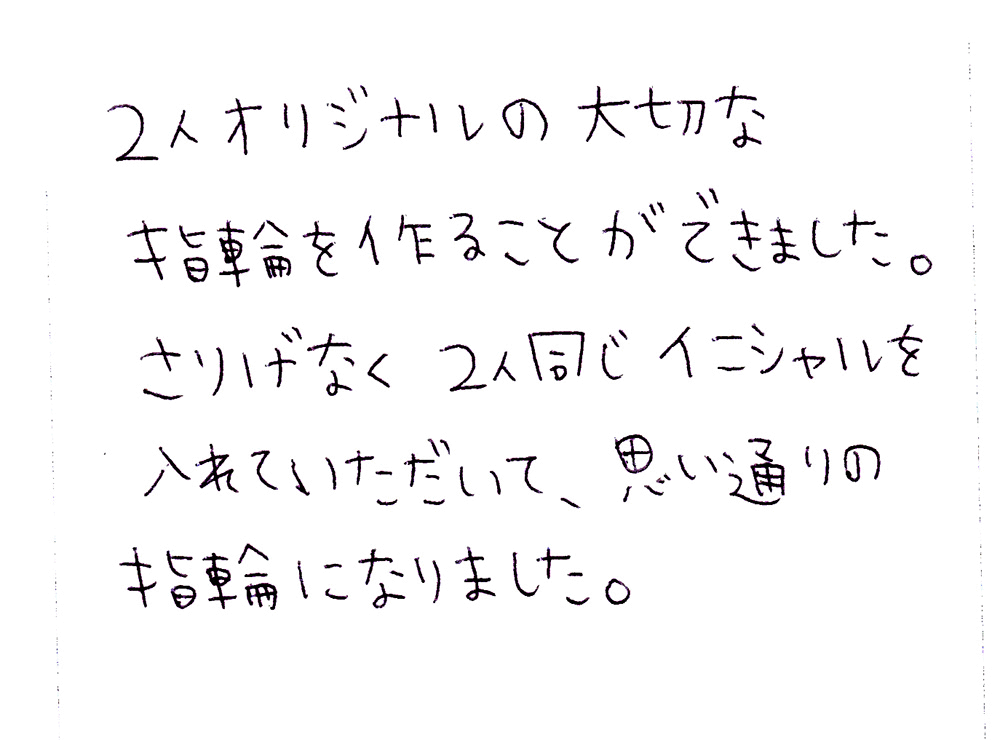 2人オリジナルの大切な
指輪を作ることができました。
さりげなく2人同じイニシャルを
入れていただいて、思い通りの
指輪になりました。